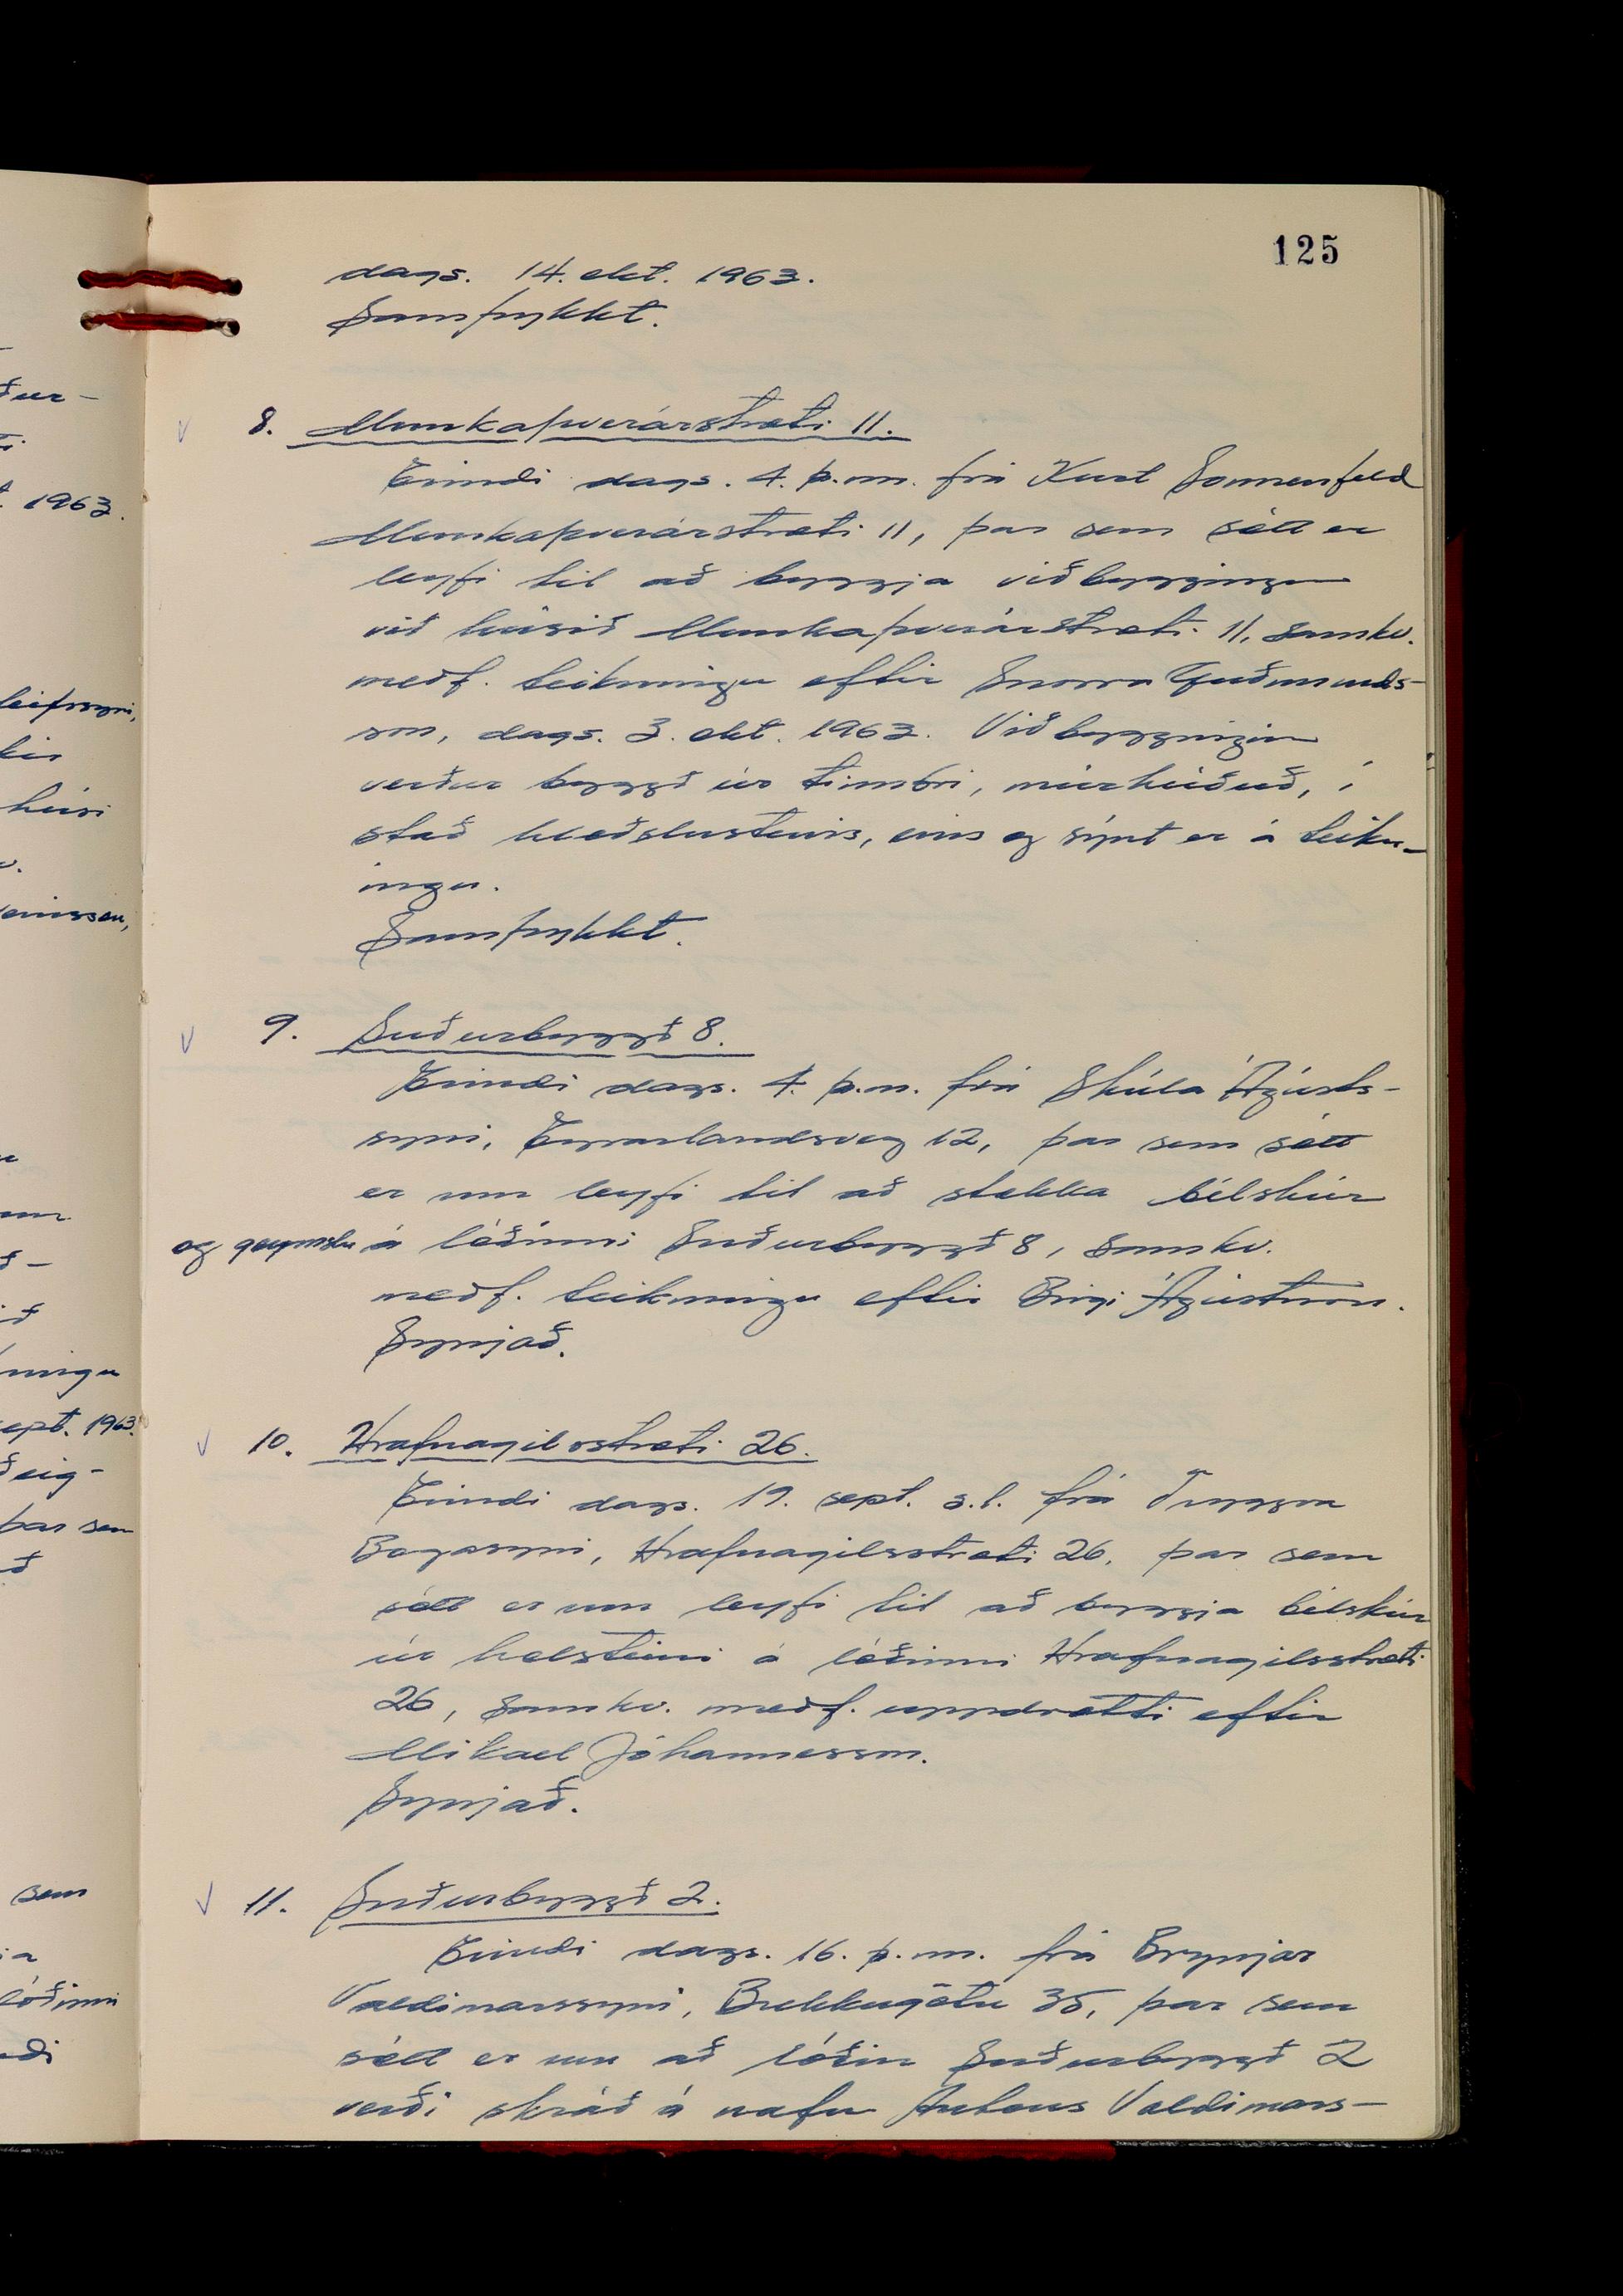 125
dags. 14. okt. 1963.
Samþykkt.
8. Munkaþverárstræti 11.
Erindi dags. 4. þ.m. frá Kurt Sonnenfeld
Munkaþverárstræti 11, þar sem sótt er
leyfi til að byggja viðbyggingu
við húsið Munkaþverárstræti 11, samkv.
meðf. teikningu eftir Snorra Guðmunds-
son, dags. 3. okt. 1963. Viðbyggingin
verður byggð úr timbri, múrhúðuð, í
stað hleðslusteins, eins og sýnt er á teikn-
ingu.
Samþykkt.
9. Suðurbyggð 8.
Erindi dags. 4. þ.m. frá Skúla Ágústs-
syni, Eyrarlandsveg 12, þar sem sótt
er um leyfi til að stækka bílskúr
og geymslu á lóðinni Suðurbyggð 8, samkv.
meðf. teikningu eftir Birgi Ágústsson.
Synjað.
10. Hrafnagilsstræti 26.
Erindi dags. 19. sept. s.l. frá Tryggva
Bogasyni, Hrafnagilsstræti 26, þar sem
sótt er um leyfi til að byggja bílskúr
úr holsteini á lóðinni Hrafnagilsstræti
26, samkv. meðf. uppdrætti eftir
Mikael Jóhannesson.
Synjað.
11. Suðurbyggð 2.
Erindi dags. 16. þ.m. frá Brynjar
Valdimarssyni, Brekkugötu 35, þar sem
sótt er um að lóðin Suðurbyggð 2
verði skráð á nafn Antons Valdimars-